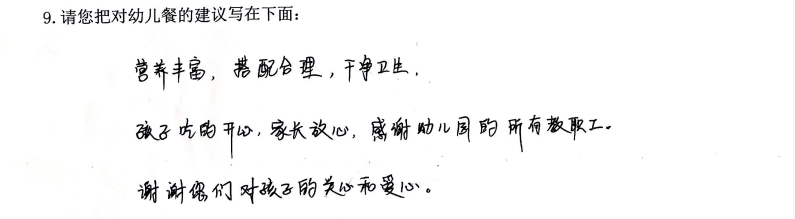 9.请您把对幼儿餐的建议写在下面：
营养丰富，搭配合理，干净卫生，
孩子吃的开心，家长放心，感谢幼儿园的所有教职工。
谢谢你们对孩子的关心和爱心。